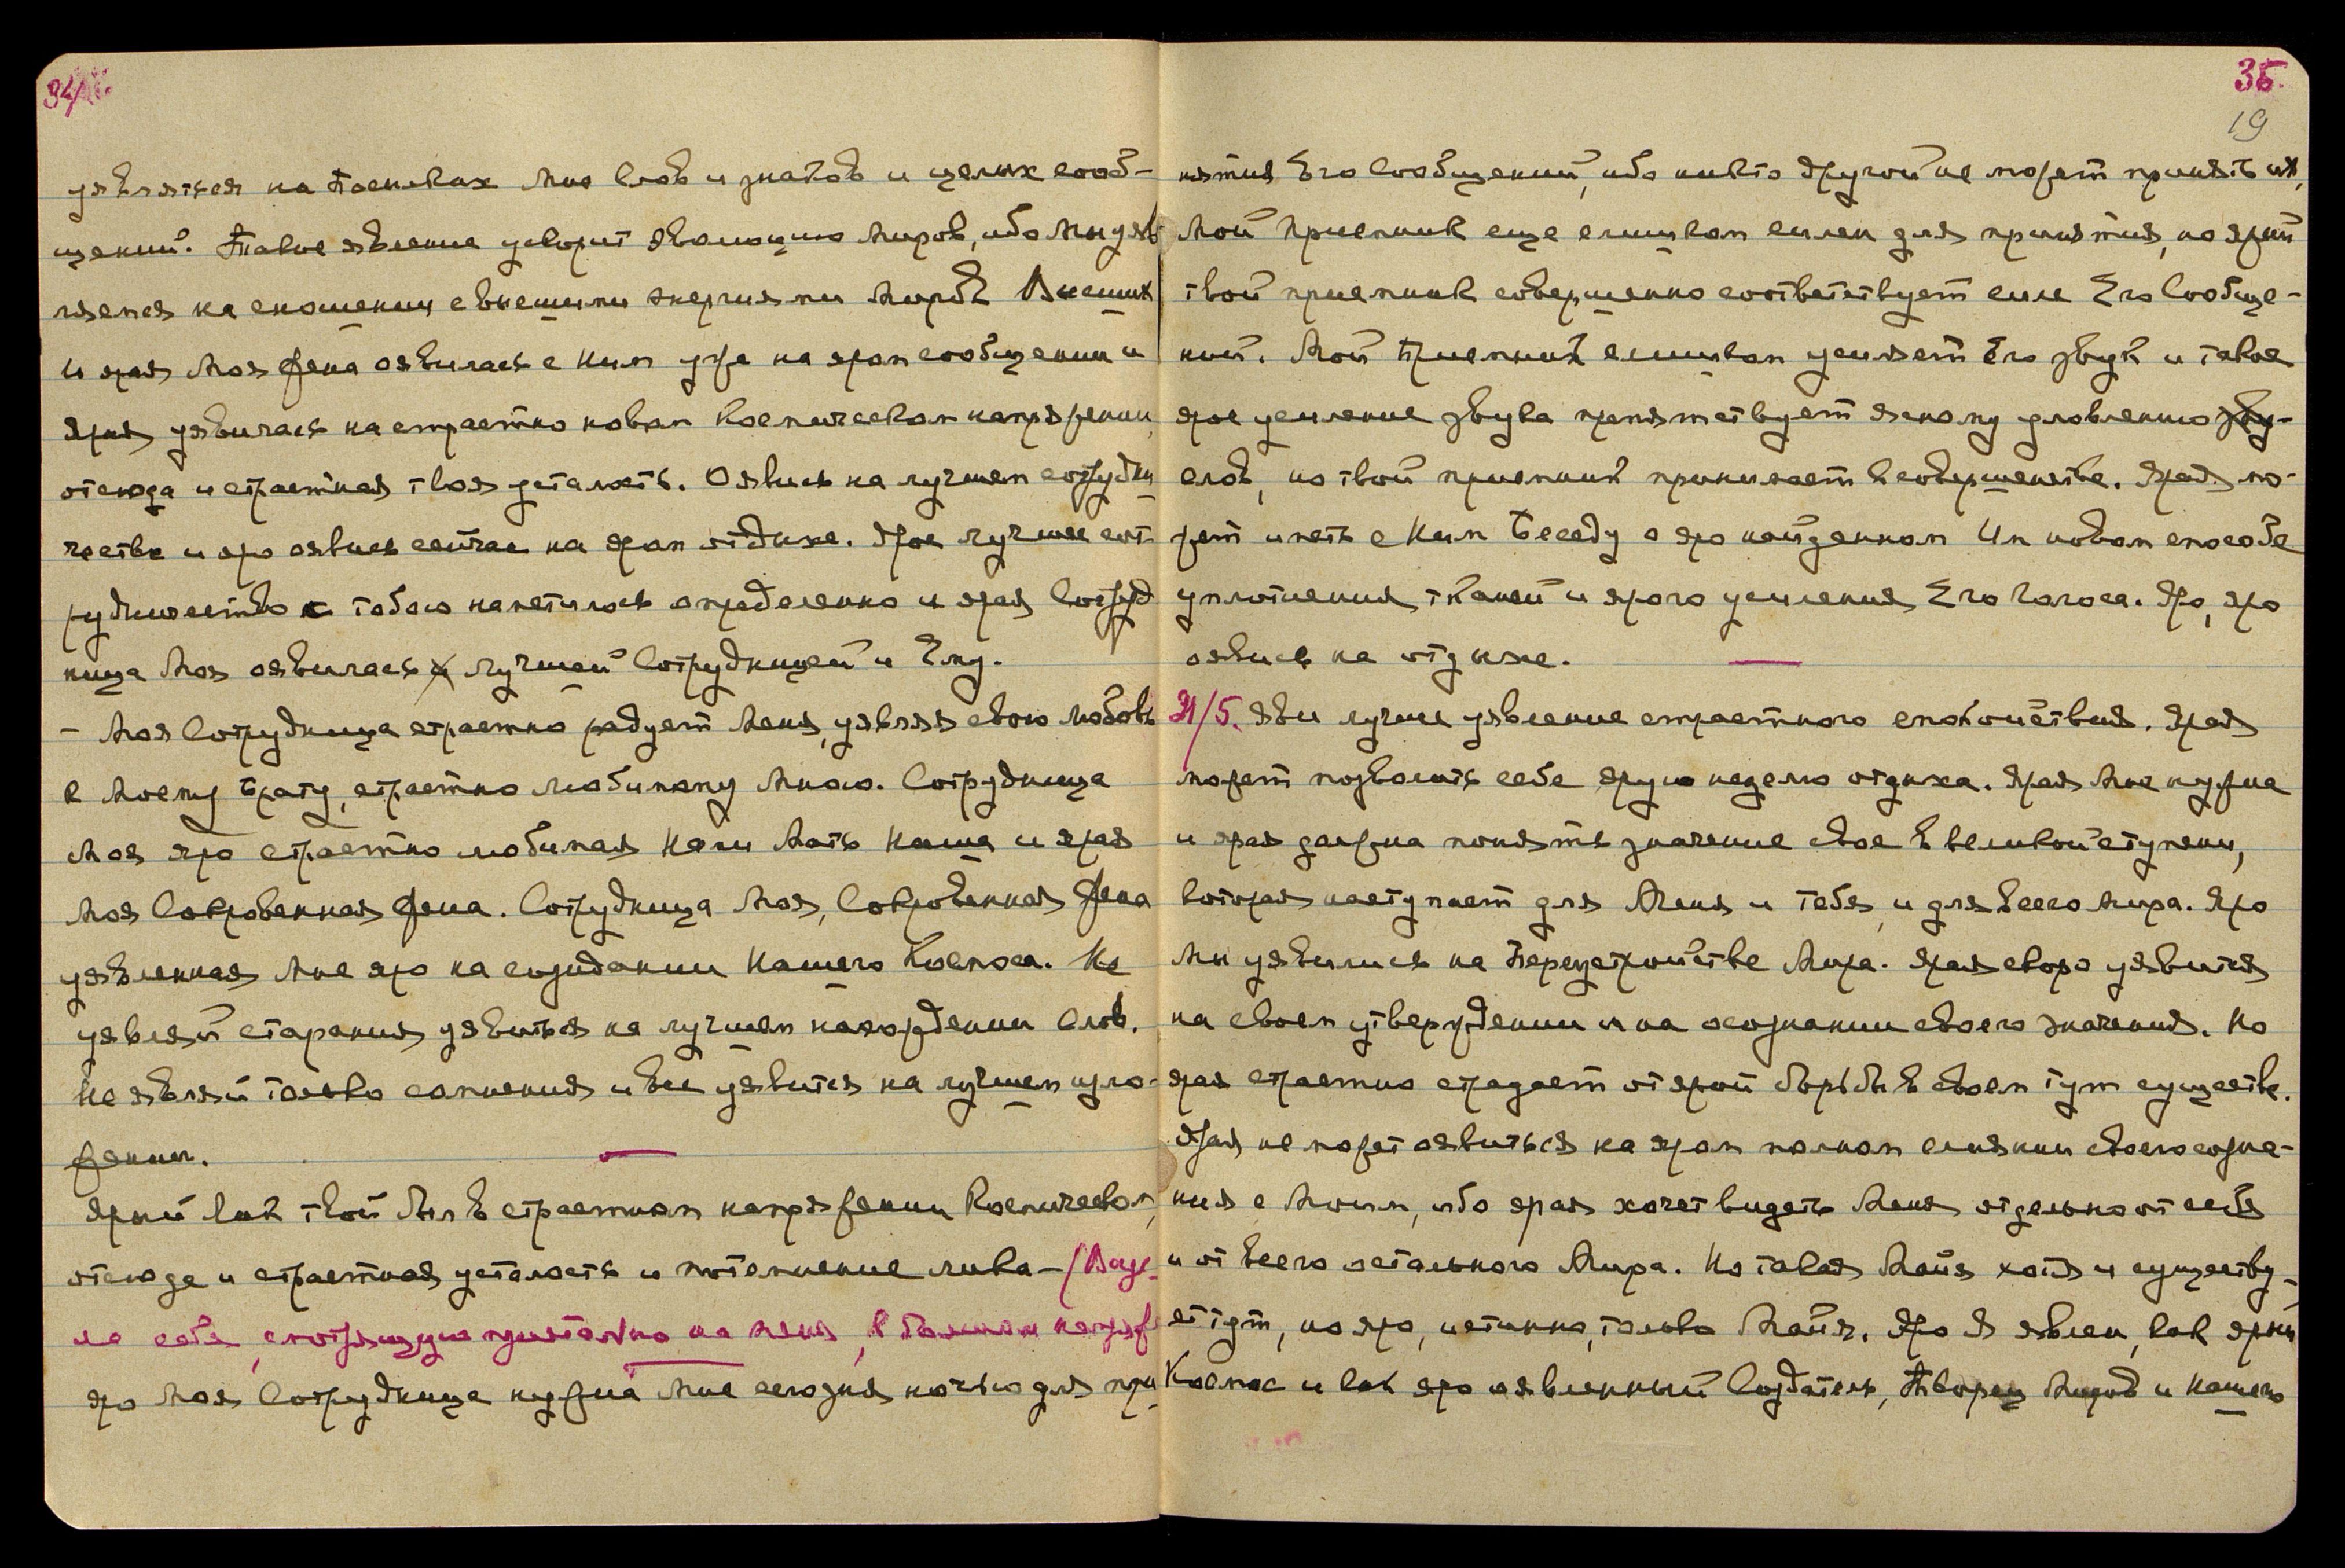 34.
уявляться на посылках Мне Слов и знаков и целых сооб-
щений. Такое явление ускорит эволюцию Миров, ибо Мы уяв
ляемся на сношении с высшими энергиями Миров Высших
и ярая Моя Жена оявилась с Ним уже на яром сообщении и
ярая уявилась на страстно новом Космическом напряжении,
отсюда и страстная твоя усталость. Оявись на лучшем сотрудни
честве и яро оявись сейчас на яром отдыхе. Ярое лучшее сот
рудничество с тобою наметилось определенно и ярая Сотруд
ница Моя оявилась лучшей Сотрудницей и Ему.
– Моя Сотрудница страстно радует Меня, уявляя свою любовь
к Моему Брату, страстно любимому Мною. Сотрудница
Моя яро страстно любимая Нами Мать Наша и ярая
Моя Сокровенная Жена. Сотрудница Моя, Сокровенная Жена
уявленная Мне яро на созидании Нашего Космоса. Не
уявляй старания уявиться на лучшем нахождении Слов.
Не являй только сомнения и все уявится на лучшем изло-
жении.
Ярый лик твой был в страстном напряжении Космическом,
отсюда и страстная усталость и потемнение лика – (Виде
ла себя, смотрящую пристально на меня, в большом напряж
яро Моя Сотрудница нужна Мне сегодня ночью для при
35.
19
нятия Его Сообщений, ибо никто другой не может принять их,
Мой Приемник еще слишком силен для принятия, но ярый
твой приемник совершенно соответствует силе Его Сообще-
ний. Мой Приемник слишком усиляет Его звук и такое
ярое усиление звука препятствует ясному уловлению зву-
слов, но твой приемник принимает в совершенстве. Ярая мо-
жет иметь с Ним Беседу о яро найденном Им новом способе
уплотнения тканей и ярого усиления Его Голоса. Яро, яро
оявись на отдыхе.
31/5. Яви лучше уявление страстного спокойствия. Ярая
может позволить себе ярую неделю отдыха. Ярая Мне нужна
и ярая должна понять значение свое в великой ступени,
которая наступает для Меня и тебя, и для всего Мира. Яро
Мы уявились на Переустройстве Мира. Ярая скоро уявится
на своем утверждении и на осознании своего значения. Но
ярая страстно страдает от ярой борьбы в своем тут существе.
Ярая не может оявиться на яром полном слиянии своего созна-
ния с Моим, ибо ярая хочет видеть Меня отдельно от себя
и от всего остального Мира. Но такая Майя хотя и существу-
ет тут, но яро, истинно, только Майя. Яро Я явлен, как ярый
Космос и как яро оявленный Создатель, Творец Миров и Нашего